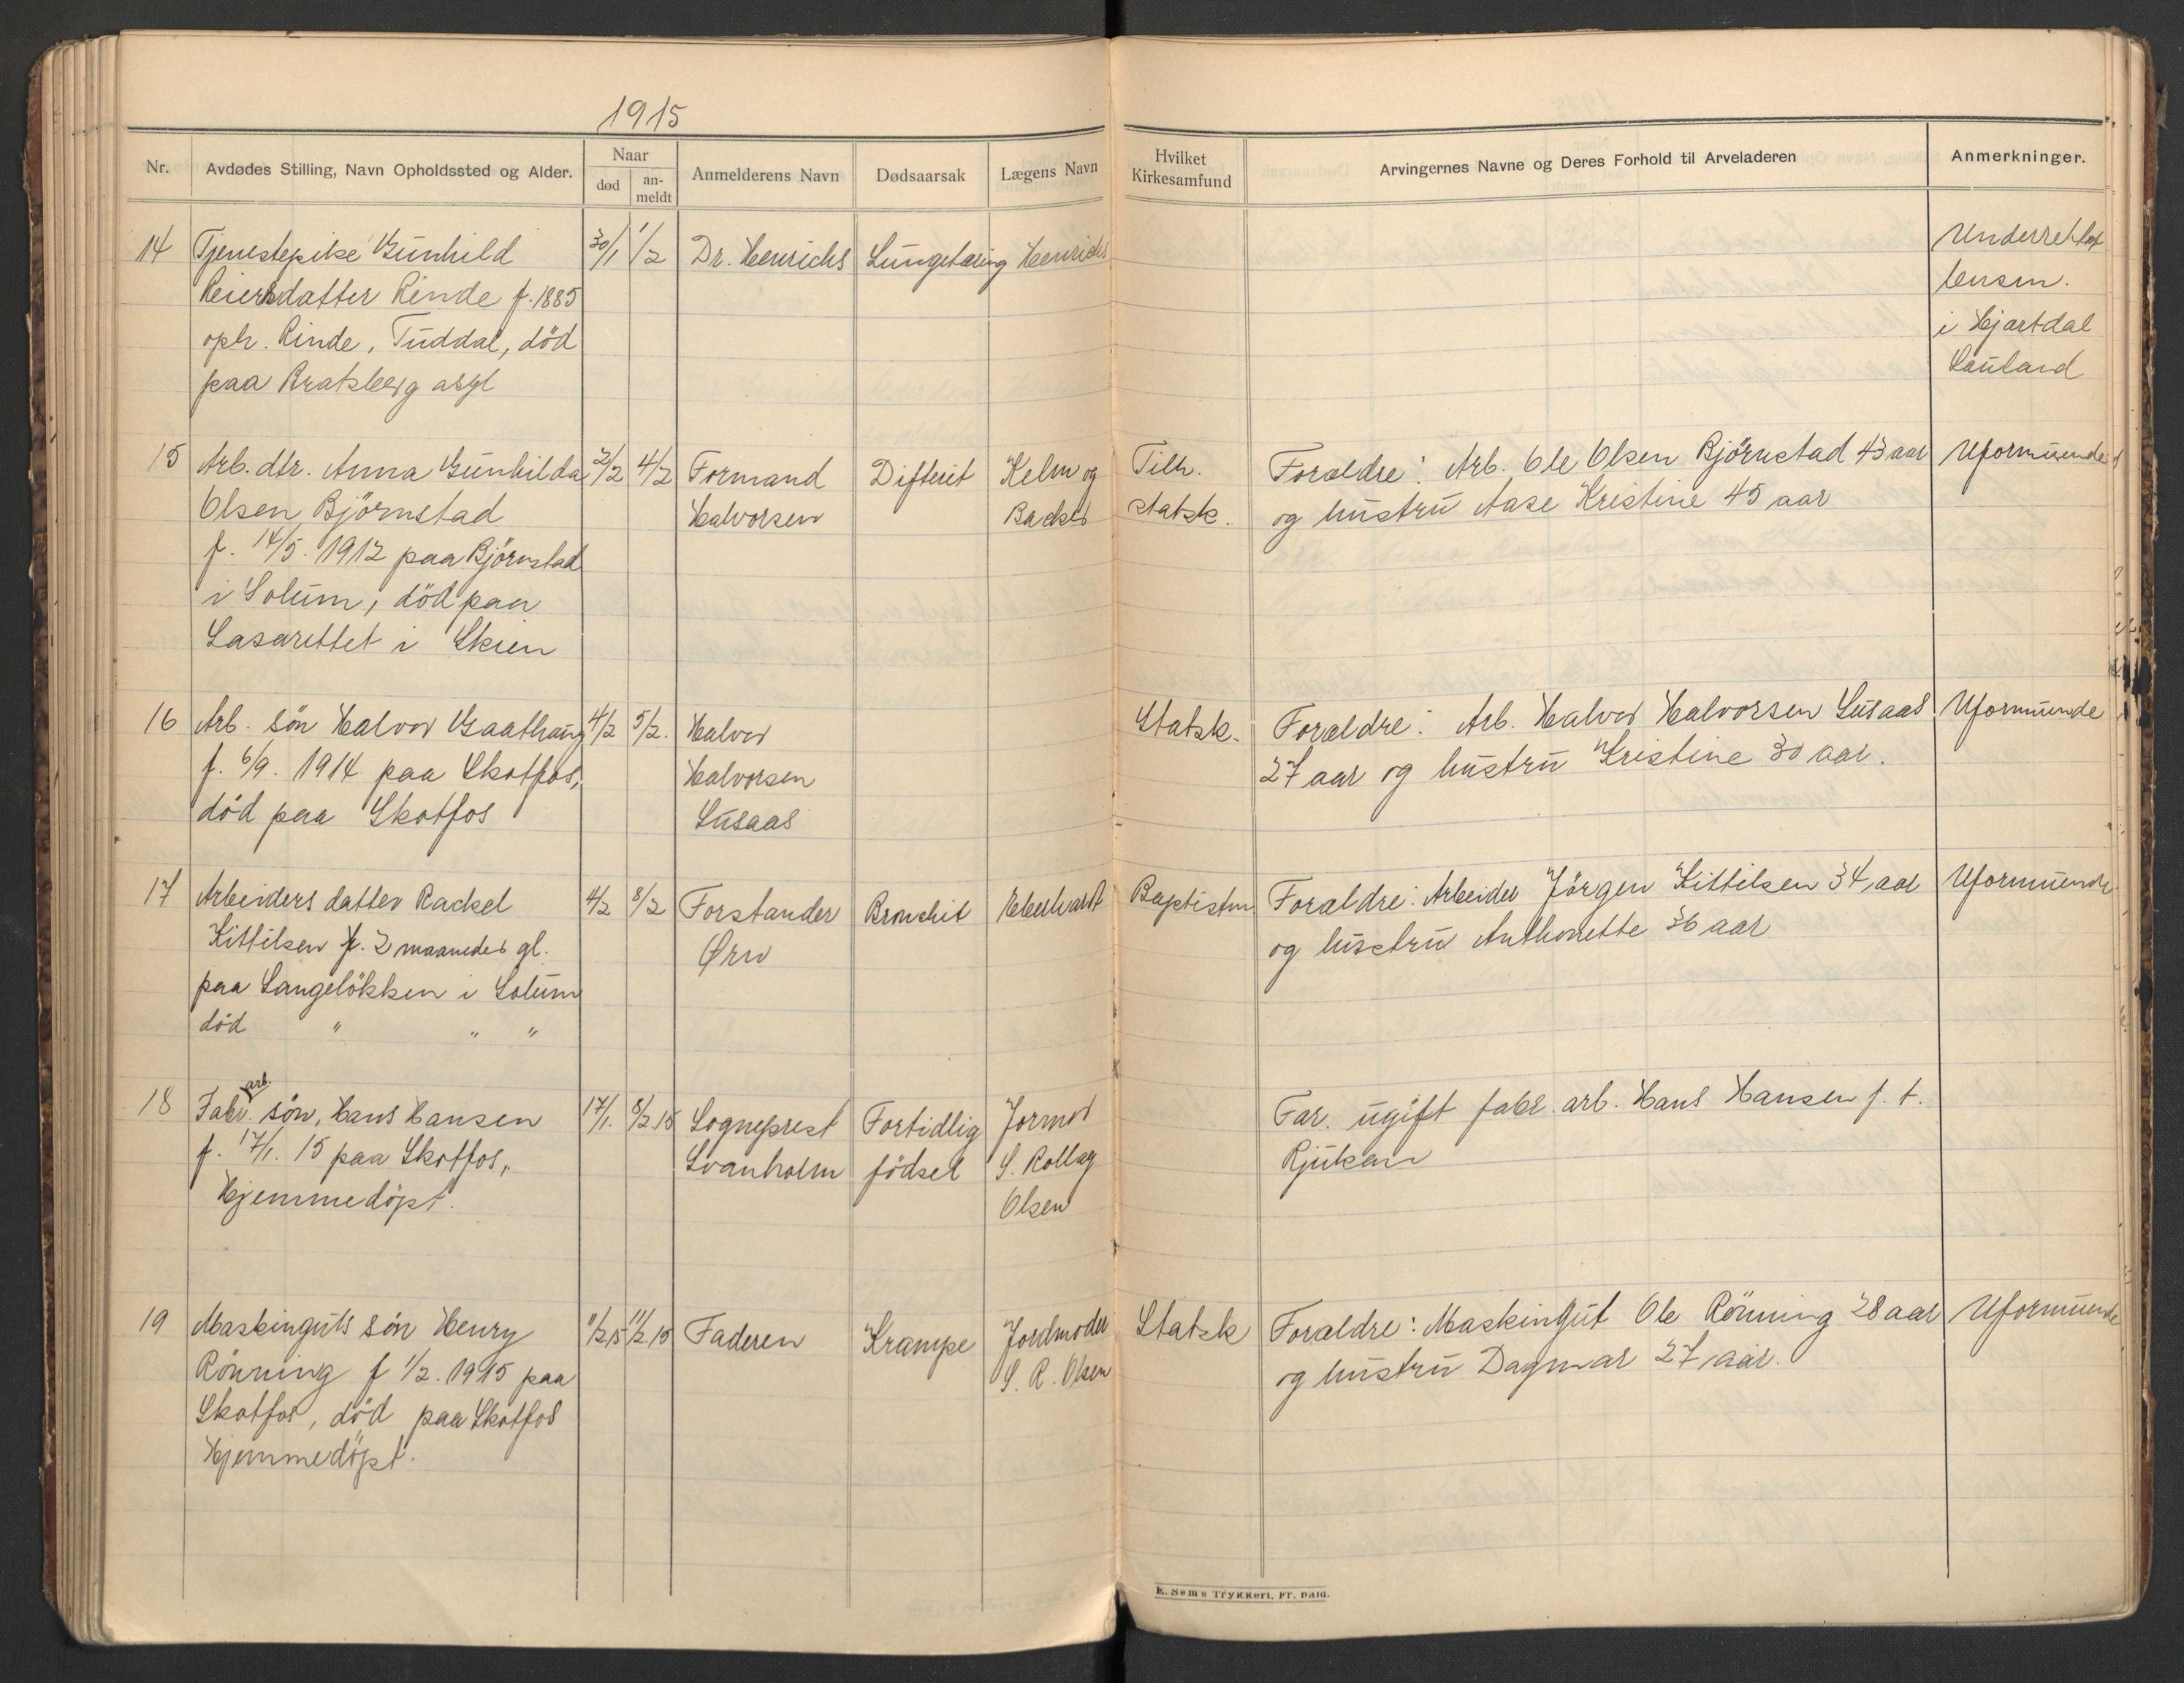 1915
Nr.
Avdødes Stilling, Navn Opholdssted og Alder.
Naar
død
an-
meldt
Anmelderens Navn
Dødsaarsak
Lægens Navn
Hvilket
Kirkesamfund
Arvingernes Navne og Deres Forhold til Arveladeren
Anmerkninger.
14 Tjenestepike Gunhild 30/1 1/2 Dr. Henrichs Lungetæring Henrichs Underrettet
Reiersdatter Rinde f. 1885 lensm.
oph. Rinde, Tuddal, död i Hjartdal
paa Bratsberg asyl Sauland
15 Arb. dtr. Anna Gunhilda 2/2 4/2 Formand Difterit Kelm og Tilh. Forældre: Arb. Ole Olsen Björnstad 43 aar Uformuende
Olsen Björnstad Halvorsen Backer statsk. og hustru Aase Kristine 45 aar
f. 14/5. 1912 paa Björnstad
i Solum, död paa
Lasarettet i Skien
16 Arb. sön Halvor Gaathaug 4/2 5/2. Halvor Statsk. Forældre: Arb. Halvor Halvorsen Lusaas Uformuende
f. 6/9. 1914 paa Skotfos, Halvorsen 27 aar og hustru Kristine 30 aar.
död paa Skotfos Lusaas
17 Arbeiders datter Rackel 4/2 8/2 Forstander Bronchit Baptistm Forældre: Arbeider Jörgen Kittilsen 34 aar Uformuende
Kittilsen f. 2 maaneder gl. Ørn og hustru Anthonette 36 aar
paa Langelökken i Solum
död " " "
18 Fabr. arb. sön, Hans Hansen 17/1. 8/2 15 Sogneprest Fortidlig Jormor Far. ugift fabr. arb. Hans Hansen f. t.
f. 17/1. 15 paa Skotfos, Svanholm födsel S. Rollag Rjukan
Hjemmedöpt. Olsen
19 Maskinguts sön Henry 11/2 15 11/2 15 Faderen Krampe Jordmoder Statsk Forældre: Maskingut Ole Rönning 28 aar Uformuende
Rönning f 1/2. 1915 paa S. R. Olsen og hustru Dagmar 27 aar.
Skotfos, död paa Skotfos
Hjemmedöpt.
E. Sem's Trykkeri, Fr. hald.